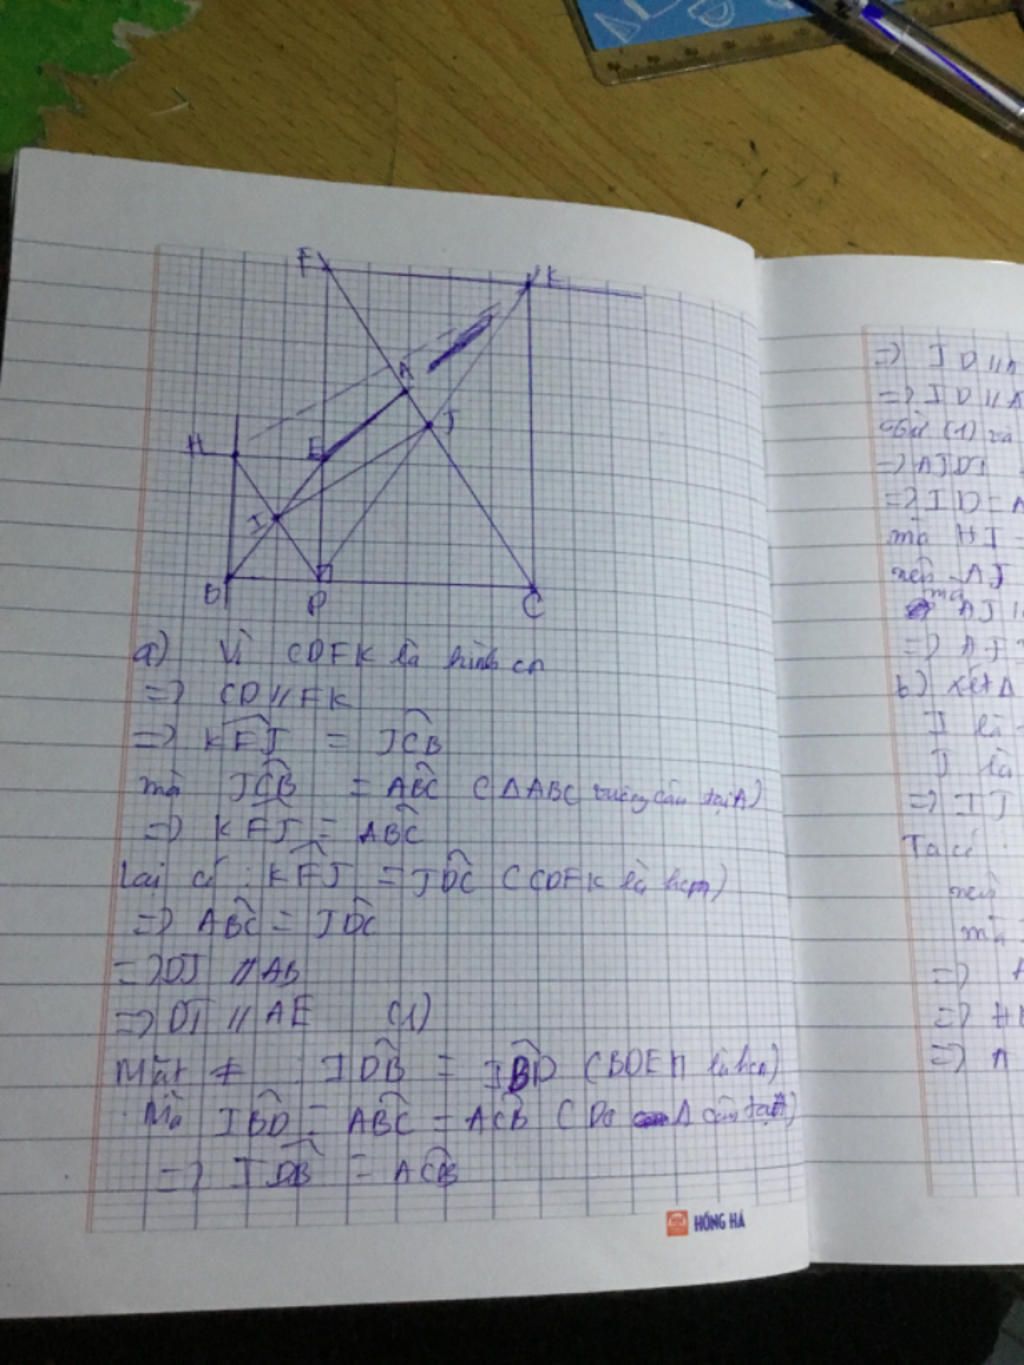 F
K
A
J
H
E
I
B
D
C
a) Vì CDFK là hình cn
=> CD // FK
=> KFJ = JCB
mà JCB = ABC (ΔABC vuông cân tại A)
=> KFJ = ABC
Lại có : KFJ = JDC (CDFK là hcn)
=> ABC = JDC
=> DJ // AB
=> DJ // AE (1)
Mặt ≠ : IDB = IBD (BDEH là hcn)
Mà IBD = ABC = ACB (Do Δ cân tại A)
=> IDB = ACB
HỒNG HÀ
=> ID // A
=> ID // A
(1) và
=> AJDI
=> ID = A
mà HI
nên AJ
mà
AJ //
=> AJ
b) Xét Δ
I là
J là
=> IJ
Ta có
nên
mà
=> A
=> HK
=> A